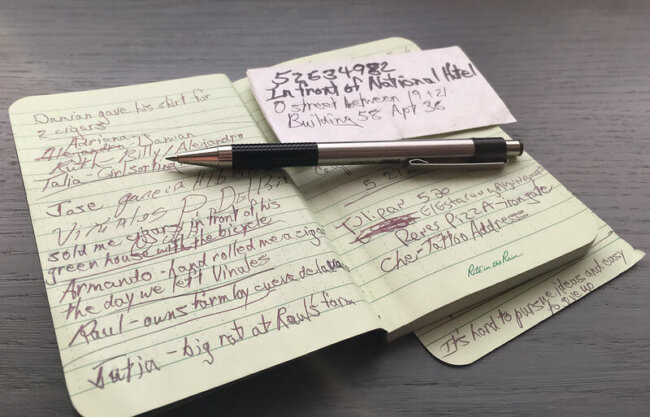 Damian gave his shirt for
2 cigars
Adriana Damian
Billy / Alejandro
Talia - Girl
Jose
Viñales
sold me cigars in front of his
green house with the bicycle
Armando - hand rolled me a cigar
the day we left Viñales
Raul - owns farm by cueva de la
Jutia - big rat at Raul's farm
52634982
In front of National Hotel
O street between 19 + 21
Building 58 Apt 36
5 2
Tulipan 530
Pizza - iron gate
Che - Tattoo Address
Rite in the Rain
It's hard to pursue ideas and easy
to give up